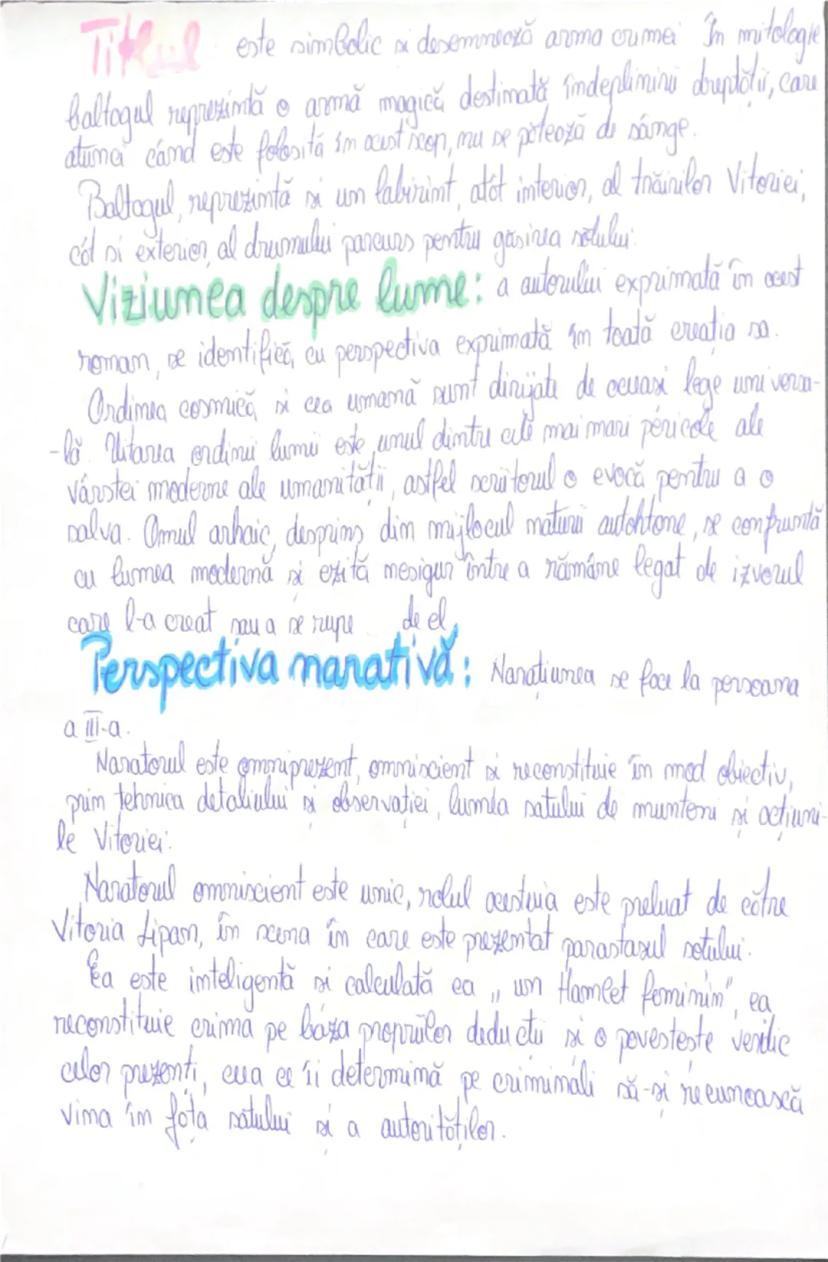 Titlul este simbolic și desemnează arma crimei În mitologie
baltagul reprezintă o armă magică destinată îndeplinirii dreptății, care
atunci când este folosită în acest scop, nu se pătează de sânge.
Baltagul, reprezintă și un labirint, atât interior, al trăirilor Vitoriei,
cât și exterior, al drumului parcurs pentru găsirea soțului.
Viziunea despre lume: a autorului exprimată în acest
roman, se identifică, cu perspectiva exprimată în toată creația sa.
Ordinea cosmică, și cea umană sunt dirijate de aceeași lege universa-
-lă. Uitarea ordinii lumii este unul dintre cele mai mari pericole ale
vârstei moderne ale umanității, astfel scriitorul o evocă pentru a o
salva. Omul arhaic, desprins din mijlocul naturii autohtone, se confruntă
cu lumea modernă și ezită nesigur între a rămâne legat de izvorul
care l-a creat sau a se rupe de el
Perspectiva narativă: Narațiunea se face la persoana
a III-a.
Naratorul este omniprezent, omniscient și reconstituie în mod obiectiv,
prin tehnica detaliului și observației, lumea satului de munteni și acțiuni-
le Vitoriei.
Naratorul omniscient este unic, rolul acestuia este preluat de către
Vitoria Lipan, în scena în care este prezentat parastasul soțului.
Ea este inteligentă și calculată ca „un Hamlet feminin", ea
reconstituie crima pe baza propriilor deducții și o povestește veridic
celor prezenți, ceea ce îi determină pe criminali să-și recunoască
vina în fața satului și a autorităților.